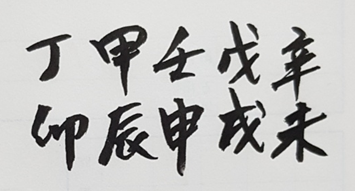 丁甲壬戊辛
卯辰申戌未